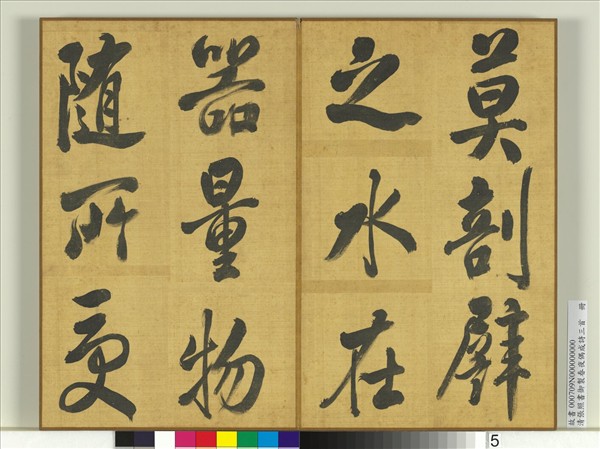 莫剖譬
之水在
器量物
随所受
故書000709N000000000
清張照書御製春夜偶成詩三首 冊
5